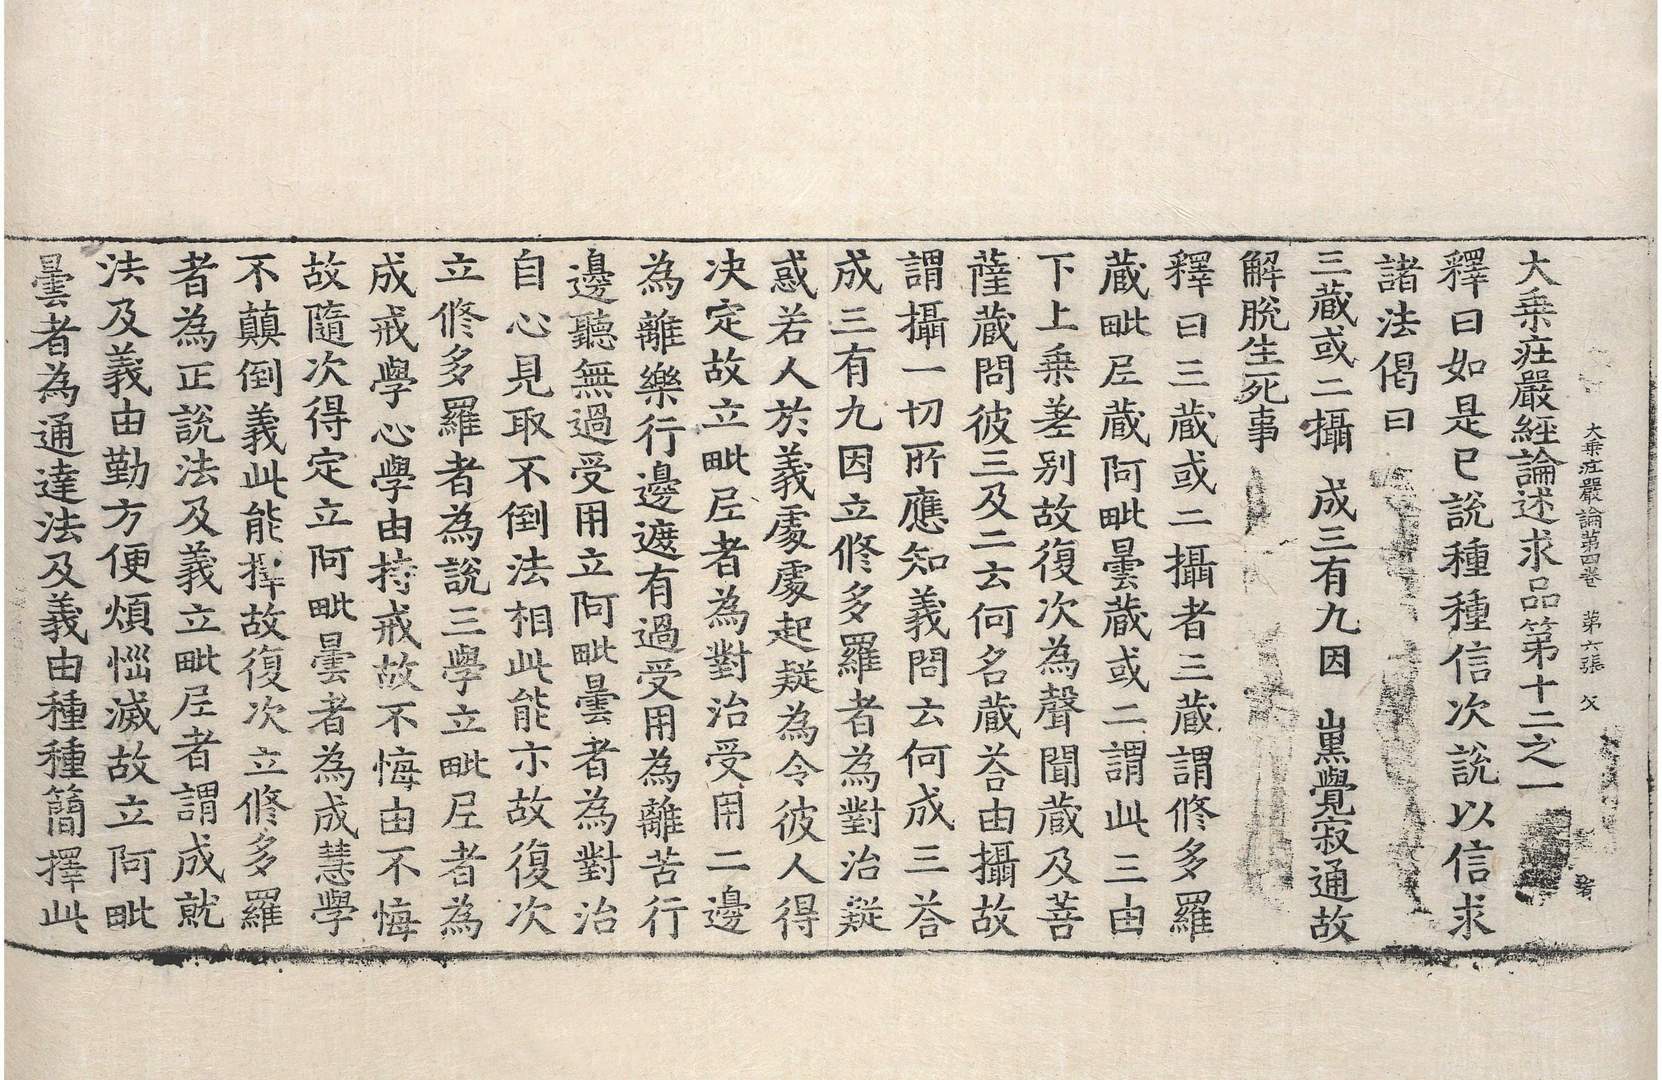 大乗庄嚴論第四卷 第六張 父
大乗庄嚴經論述求品第十二之一
釋曰如是已說種種信次說以信求
諸法偈曰
三藏或二攝 成三有九因 熏覺寂通故
解脫生死事
釋曰三藏或二攝者三藏謂修多羅
藏毗尼藏阿毗曇藏或二謂此三由
下上乗差別故復次為聲聞藏及菩
薩藏問彼三及二云何名藏荅由攝故
謂攝一切所應知義問云何成三荅
成三有九因立修多羅者為對治疑
惑若人於義處處起疑為令彼人得
決定故立毗尼者為對治受用二邊
為離樂行邊遮有過受用為離苦行
邊聽無過受用立阿毗曇者為對治
自心見取不倒法相此能示故復次
立修多羅者為說三學立毗尼者為
成戒學心學由持戒故不悔由不悔
故隨次得定立阿毗曇者為成慧學
不顛倒義此能擇故復次立修多羅
者為正說法及義立毗尼者謂成就
法及義由勤方便煩惱滅故立阿毗
曇者為通達法及義由種種簡擇此